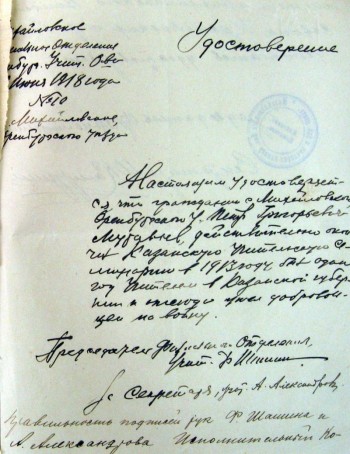 Удостоверение
хайловское
Отделения
Учит. О-ва
Июня 1918 года
№ 10
Михайловское
ренбургского уезда
Настоящим удостоверяет-
ся, что гражданин с. Михайловского
Оренбургского у. Петр Григорьевич
Муравьев, действительно окон-
чил Казанскую Учительскую Се-
минарию в 1913 году был один
год учителем в Казанской губер-
нии и отсюда ушел доброволь-
цем на войну.
Председатель Отделения
Учит. Ф. Шашин
За Секретаря, учит. А. Александров
Правильность подписей рук Ф. Шашина и
А. Александрова Исполнительный Ко-